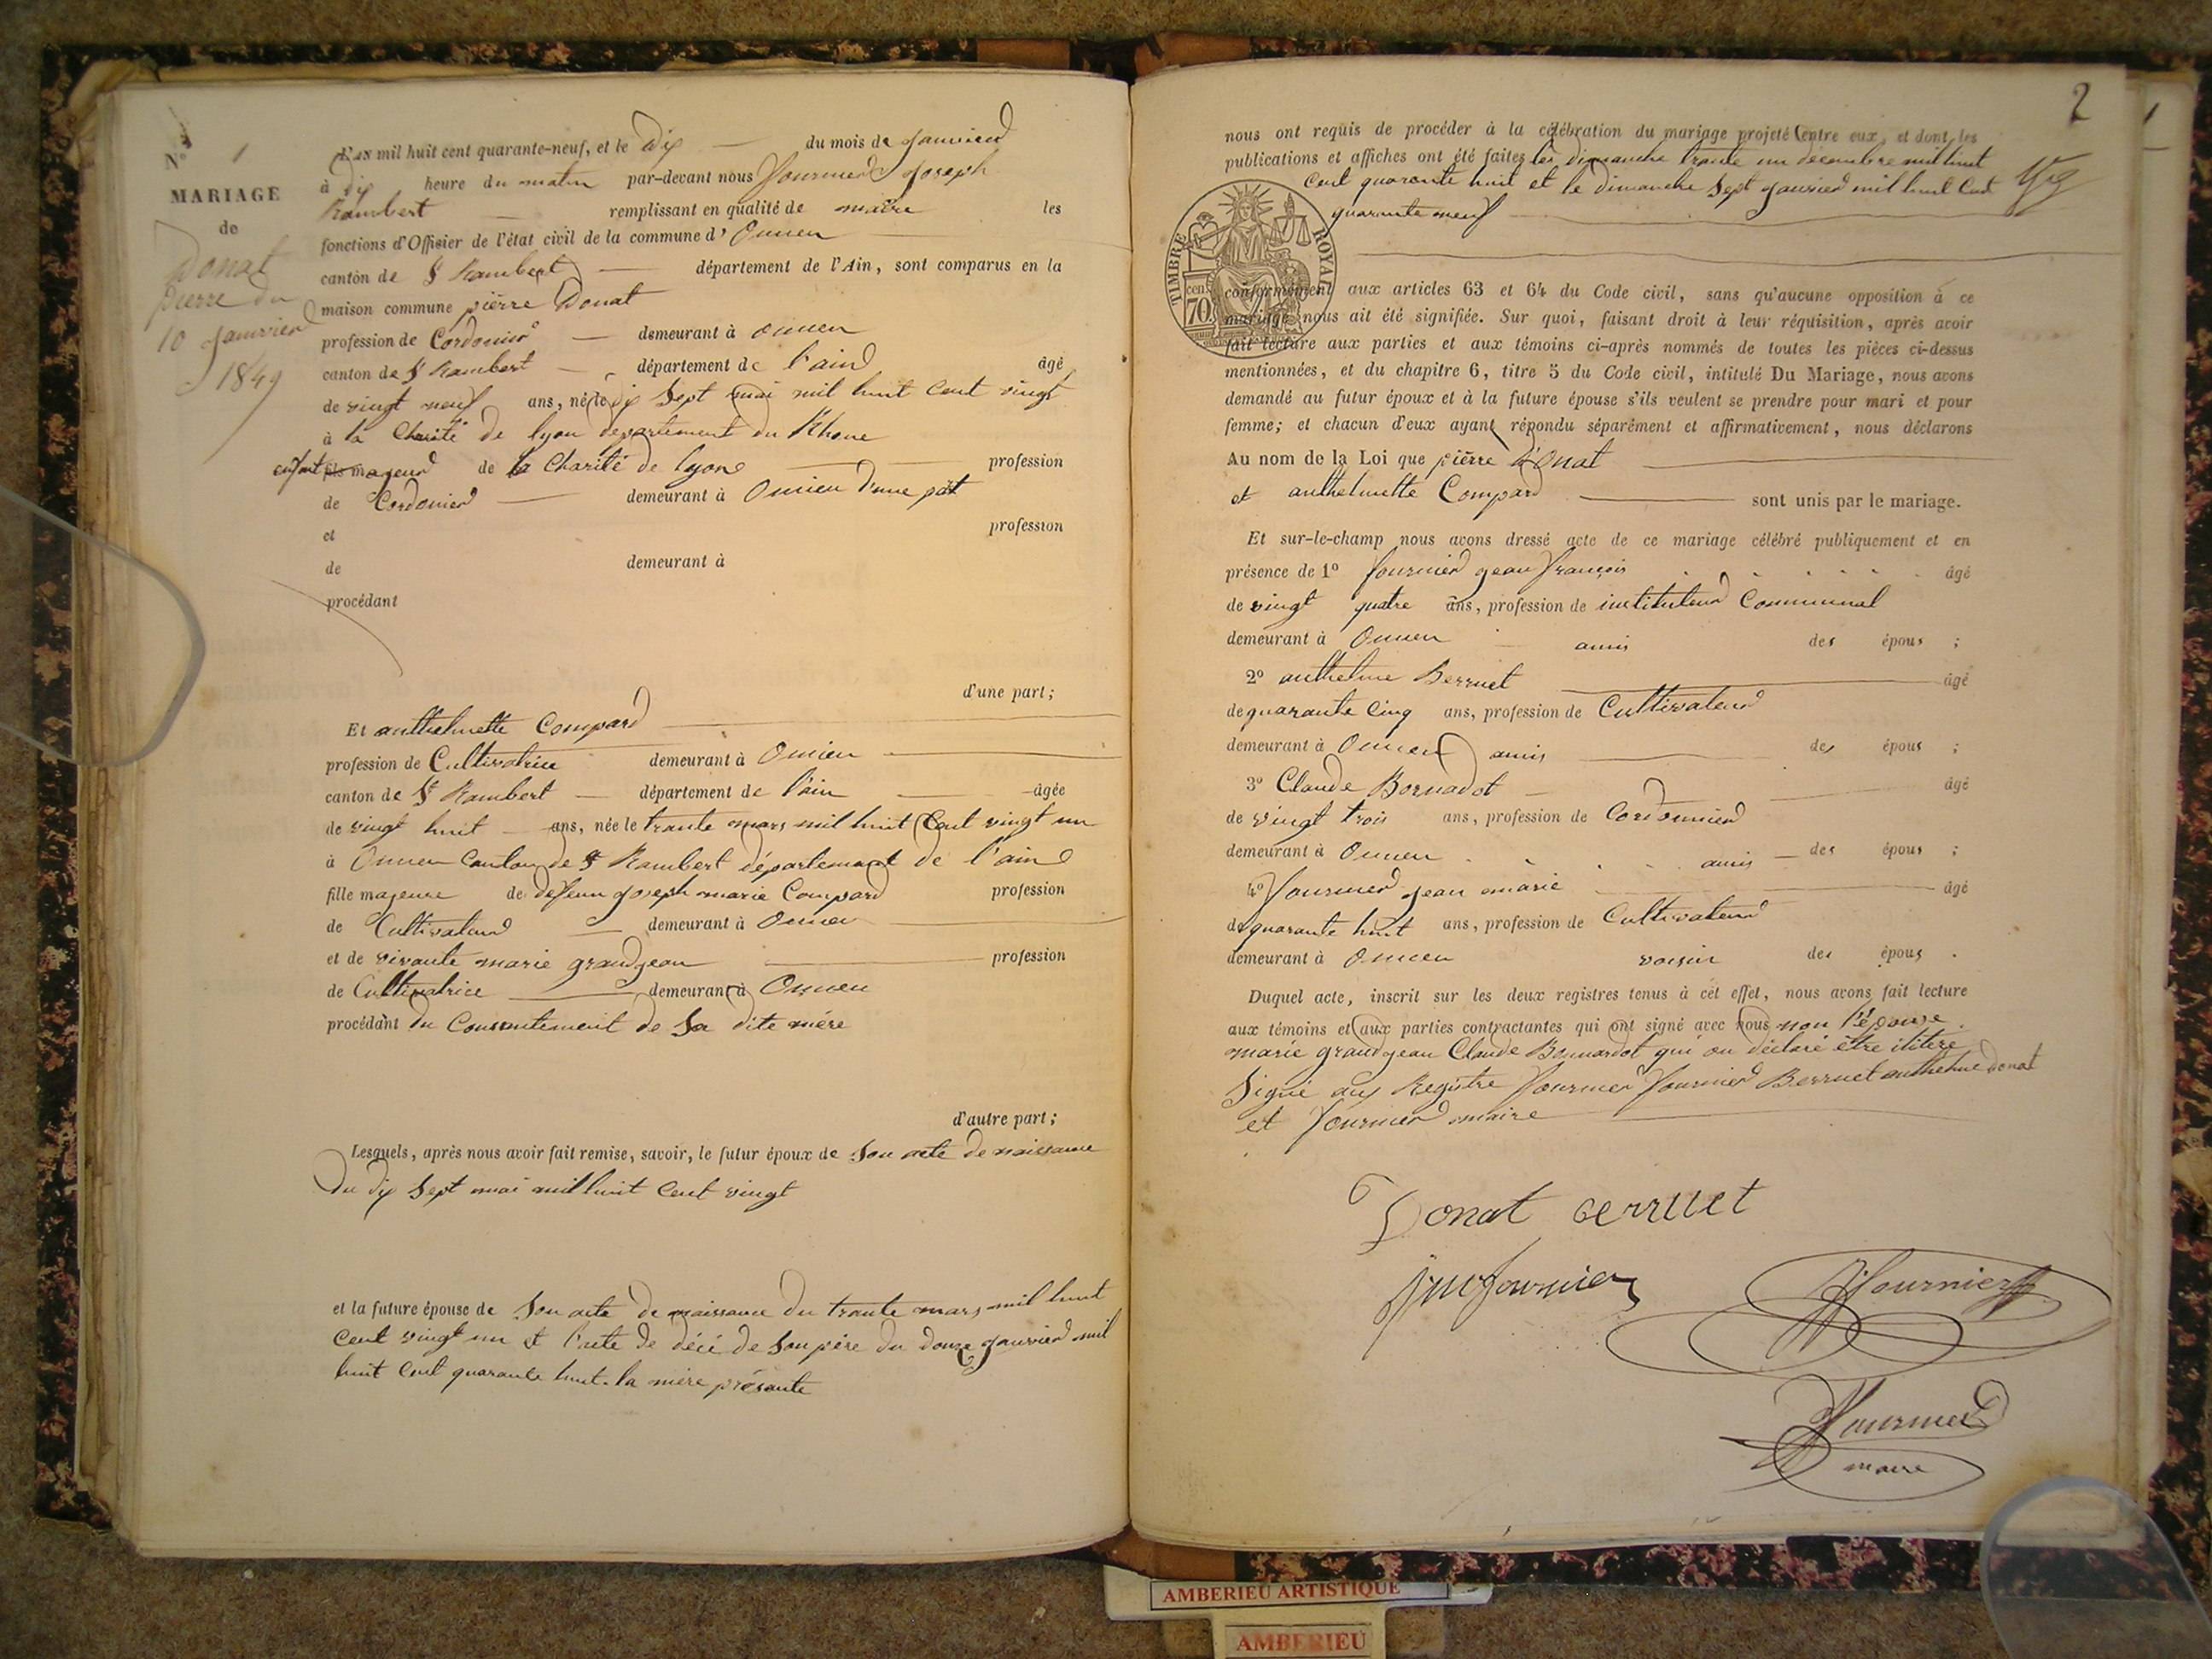 N° 1
MARIAGE
de
Donat
pierre du
10 Janvier
1849
L'AN mil huit cent quarante-neuf, et le dix du mois de Janvier
à dix heure du matin par-devant nous Fournier Joseph
Rambert remplissant en qualité de maire les
fonctions d'Offisier de l'état civil de la commune d' Oncieu
canton de St Rambert département de l'Ain, sont comparus en la
maison commune pierre Donat
profession de Cordonier demeurant à oncieu
canton de St Rambert département de l'ain âgé
de vingt neuf ans, né le dix Sept mai mil huit cent vingt
à la Charité de lyon département du Rhone
enfant fils majeur de la Charité de lyon profession
de Cordonier demeurant à Oncieu d'une part
et profession
de demeurant à
procédant
d'une part;
Et anthelmette Compard
profession de Cultivatrice demeurant à Oncieu
canton de St Rambert département de l'ain âgée
de vingt huit ans, née le trante mars mil huit Cent vingt un
à Oncieu Canton de St Rambert département de l'ain
fille majeure de defeun Joseph marie Compard profession
de Cultivateur demeurant à Oncieu
et de vivante marie grandjean profession
de Cultivatrice demeurant à Oncieu
procédant du Consentement de Sa dite mére
d'autre part;
Lesquels, après nous avoir fait remise, savoir, le futur époux de Son acte de naissance
du dix Sept mai mil huit cent vingt
et la future épouse de Son acte de naissance du trante mars mil huit
cent vingt un et l'acte de décé de Son père du douze janvier mil
huit cent quarante huit. la mère présante
2
nous ont requis de procéder à la célébration du mariage projeté entre eux, et dont les
publications et affiches ont été faites les dimanche trante un décembre mil huit
cent quarante huit et le dimanche Sept janvier mil huit Cent
quarante neuf
TIMBRE ROYAL
cen. 70
conformément aux articles 63 et 64 du Code civil, sans qu'aucune opposition à ce
mariage nous ait été signifiée. Sur quoi, faisant droit à leur réquisition, après avoir
fait lecture aux parties et aux témoins ci-après nommés de toutes les pièces ci-dessus
mentionnées, et du chapitre 6, titre 5 du Code civil, intitulé Du Mariage, nous avons
demandé au futur époux et à la future épouse s'ils veulent se prendre pour mari et pour
femme; et chacun d'eux ayant répondu séparément et affirmativement, nous déclarons
Au nom de la Loi que pièrre Donat
et anthelmette Compard sont unis par le mariage.
Et sur-le-champ nous avons dressé acte de ce mariage célébré publiquement et en
présence de 1° fournier jean françois âgé
de vingt quatre ans, profession de instituteur Communal
demeurant à Oncieu amis des épous ;
2° anthelme Berruet âgé
de quarante Cinq ans, profession de Cultivateur
demeurant à Oncieu amis des épous ;
3° Claude Bornadot âgé
de vingt trois ans, profession de Cordonnier
demeurant à Oncieu amis des épous ;
4° fournier jean marie âgé
de quarante huit ans, profession de Cultivateur
demeurant à Oncieu voisin des épous .
Duquel acte, inscrit sur les deux registres tenus à cet effet, nous avons fait lecture
aux témoins et aux parties contractantes qui ont signé avec nous non l'épouse
marie grandjean Claude Bonnardot qui on déclaré être ilitéré
Signé aux Registre fournier fournier Berruet anthelme donat
et fournier maire
Donat Berruet
jm fournier
Fournier
Fournier
maire
AMBERIEU ARTISTIQUE
AMBERIEU